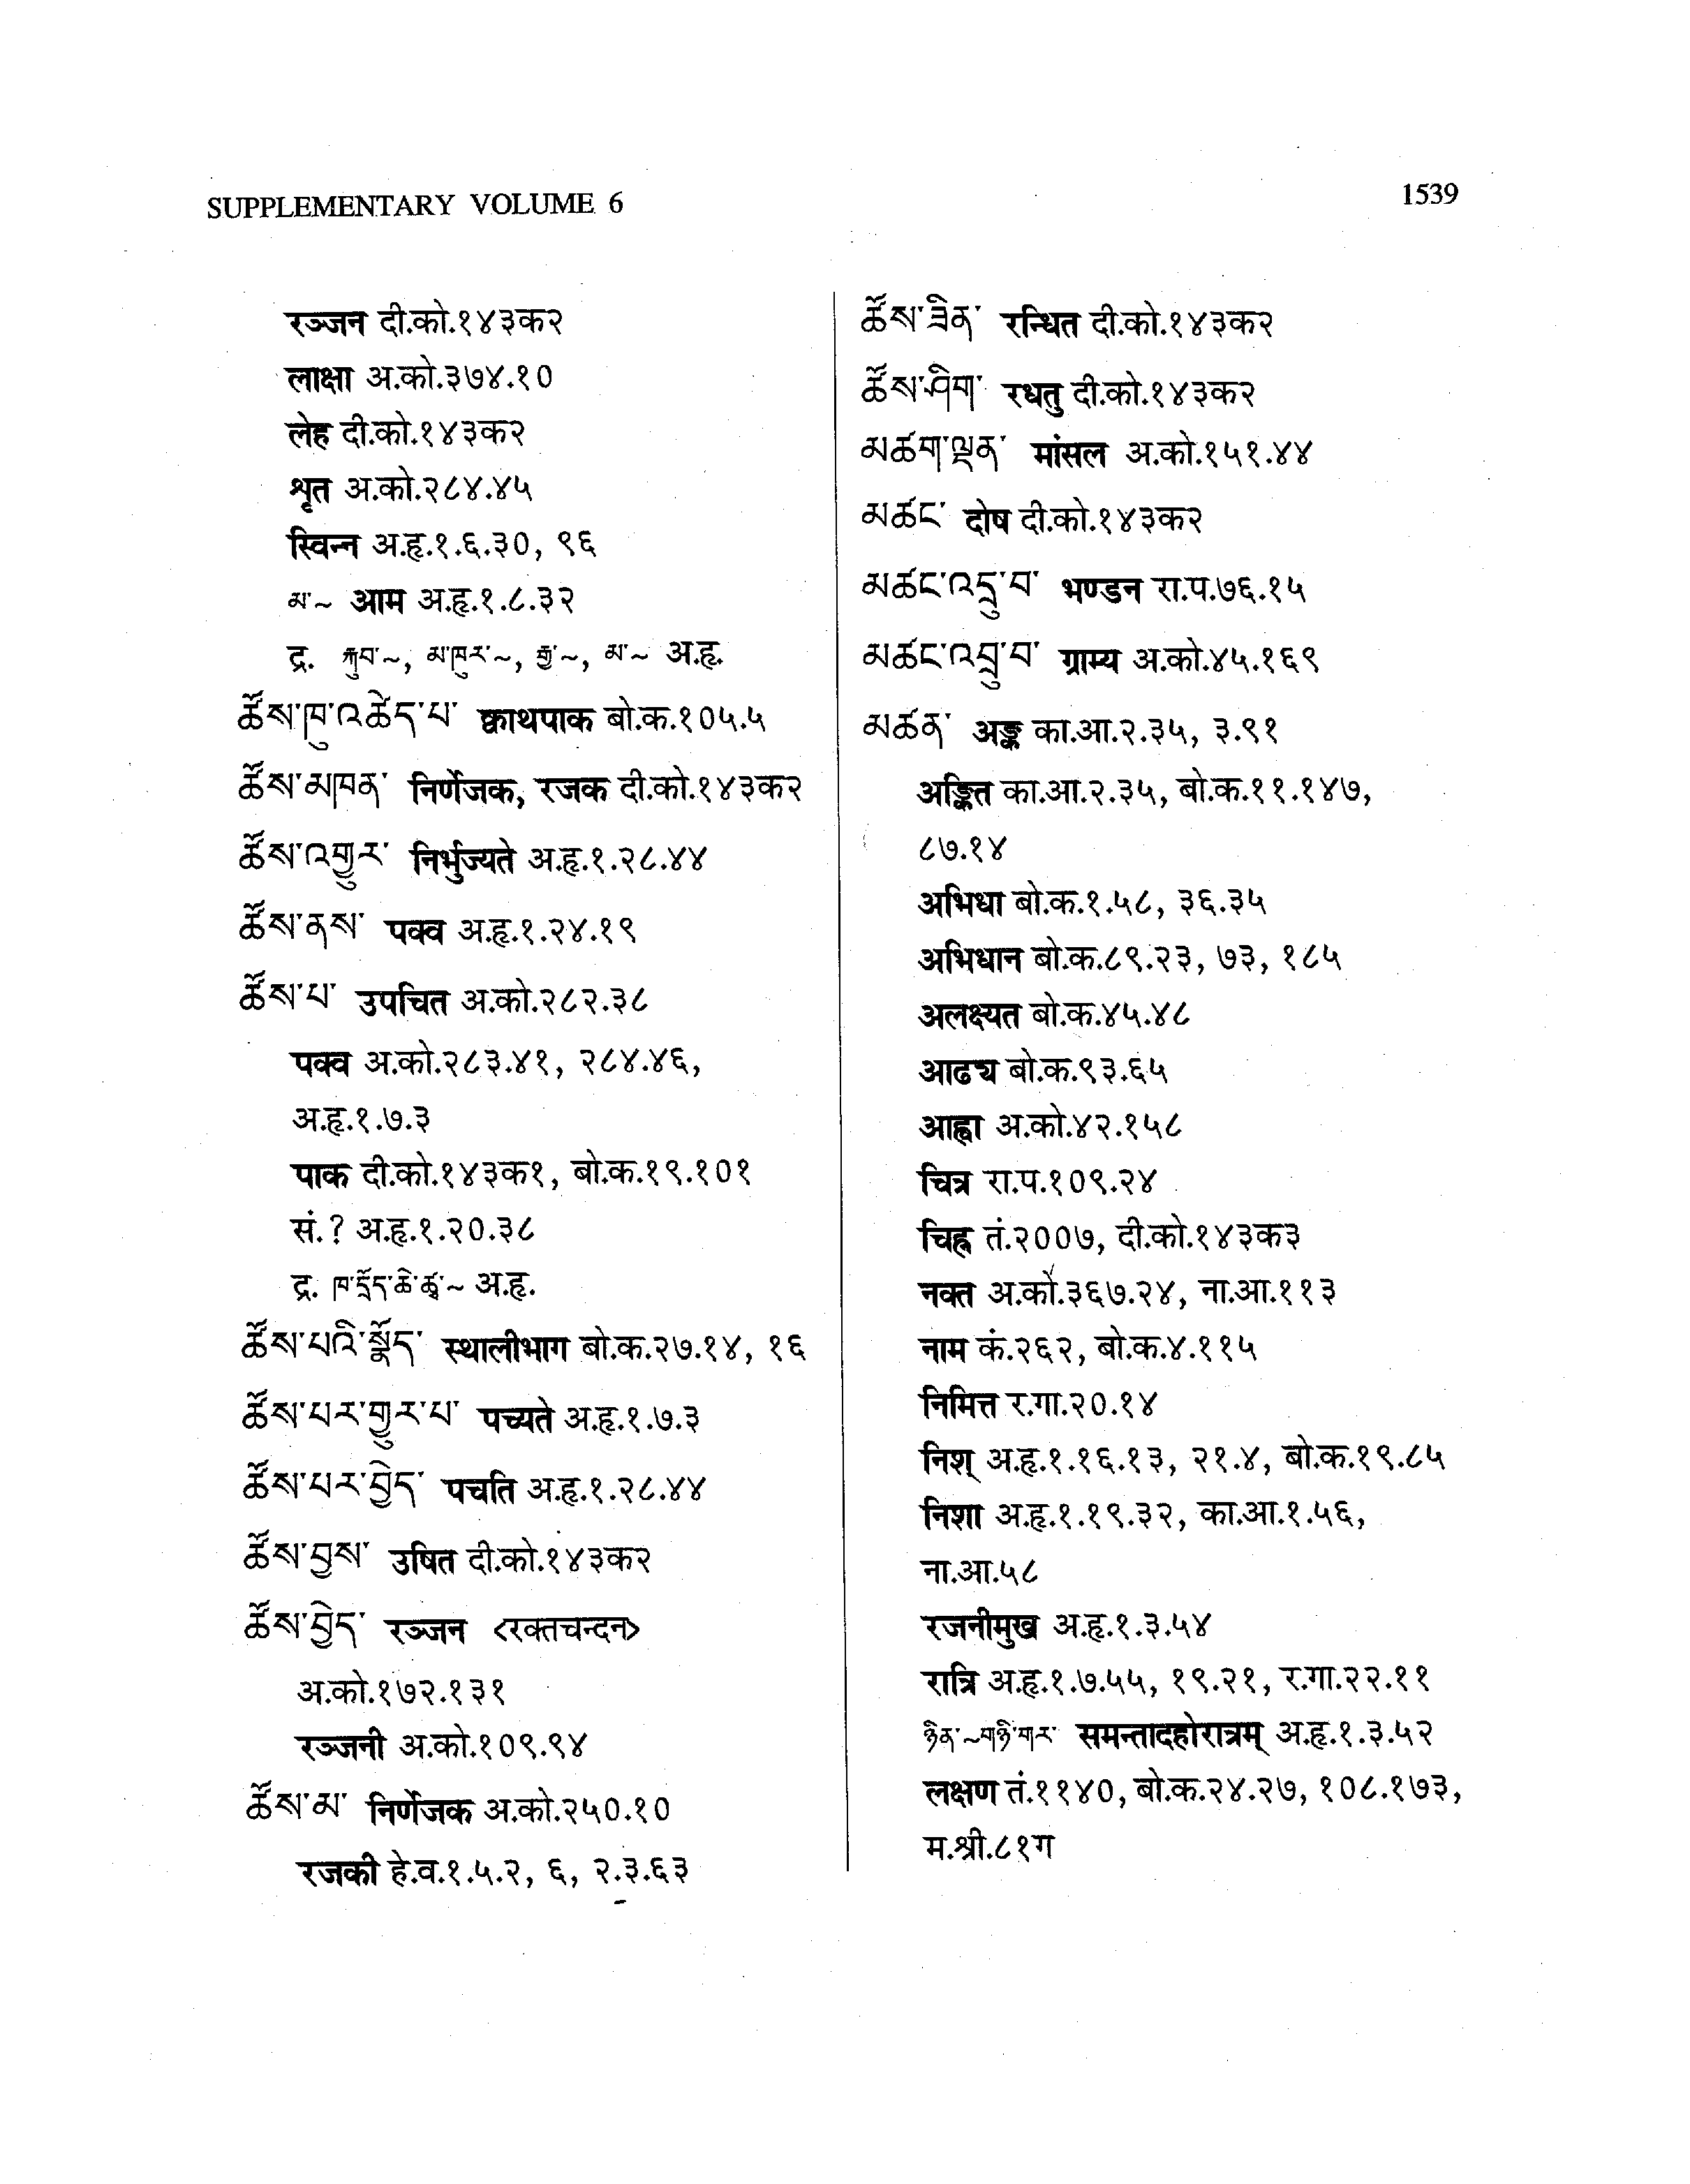 SUPPLEMENTARY VOLUME 6
1539
रञ्जन दी.को.१४३क२
लाक्षा अ.को.३७४.१०
लेह दी.को.१४३क२
शृत अ.को.२८४.४५
स्विन्न अ.हृ.१.६.३०, ९६
མ་~ आम अ.हृ.१.८.३२
द्र. རྐུབ་~, མ་ཁུར་~, རྒྱ་~, མ་~ अ.हृ.
ཚོས་ཁུ་འཚེད་པ་ क्वाथपाक बो.क.१०५.५
ཚོས་མཁན་ निर्णेजक, रजक दी.को.१४३क२
ཚོས་འགྱུར་ निर्भुज्यते अ.हृ.१.२८.४४
ཚོས་ནས་ पक्व अ.हृ.१.२४.१९
ཚོས་པ་ उपचित अ.को.२८२.३८
पक्व अ.को.२८३.४१, २८४.४६,
अ.हृ.१.७.३
पाक दी.को.१४३क१, बो.क.१९.१०१
सं.? अ.हृ.१.२०.३८
द्र. ཁ་དོད་ཆེ་ཚྭ་~ अ.हृ.
ཚོས་པའི་སྣོད་ स्थालीभाग बो.क.२७.१४, १६
ཚོས་པར་གྱུར་པ་ पच्यते अ.हृ.१.७.३
ཚོས་པར་བྱེད་ पचति अ.हृ.१.२८.४४
ཚོས་བྱས་ उषित दी.को.१४३क२
ཚོས་བྱེད་ रञ्जन <रक्तचन्दन>
अ.को.१७२.१३१
रञ्जनी अ.को.१०९.९४
ཚོས་མ་ निर्णेजक अ.को.२५०.१०
रजकी हे.व.१.५.२, ६, २.३.६३
ཚོས་ཟིན་ रन्धित दी.को.१४३क२
ཚོས་ཤིག་ रधतु दी.को.१४३क२
མཚག་ལྡན་ मांसल अ.को.१५१.४४
མཚང་ दोष दी.को.१४३क२
མཚང་འདྲུ་བ་ भण्डन रा.प.७६.१५
མཚང་འབྲུ་བ་ ग्राम्य अ.को.४५.१६९
མཚན་ अङ्क का.आ.२.३५, ३.९१
अङ्कित का.आ.२.३५, बो.क.११.१४७,
८७.१४
अभिधा बो.क.१.५८, ३६.३५
अभिधान बो.क.८९.२३, ७३, १८५
अलक्ष्यत बो.क.४५.४८
आढ्य बो.क.९३.६५
आह्वा अ.को.४२.१५८
चित्र रा.प.१०९.२४
चिह्न तं.२००७, दी.को.१४३क३
नक्त अ.को.३६७.२४, ना.आ.११३
नाम कं.२६२, बो.क.४.११५
निमित्त र.गा.२०.१४
निश् अ.हृ.१.१६.१३, २१.४, बो.क.१९.८५
निशा अ.हृ.१.१९.३२, का.आ.१.५६,
ना.आ.५८
रजनीमुख अ.हृ.१.३.५४
रात्रि अ.हृ.१.७.५५, १९.२१, र.गा.२२.११
ཉིན་~གཉི་གར་ समन्तादहोरात्रम् अ.हृ.१.३.५२
लक्षण तं.११४०, बो.क.२४.२७, १०८.१७३,
म.श्री.८१ग